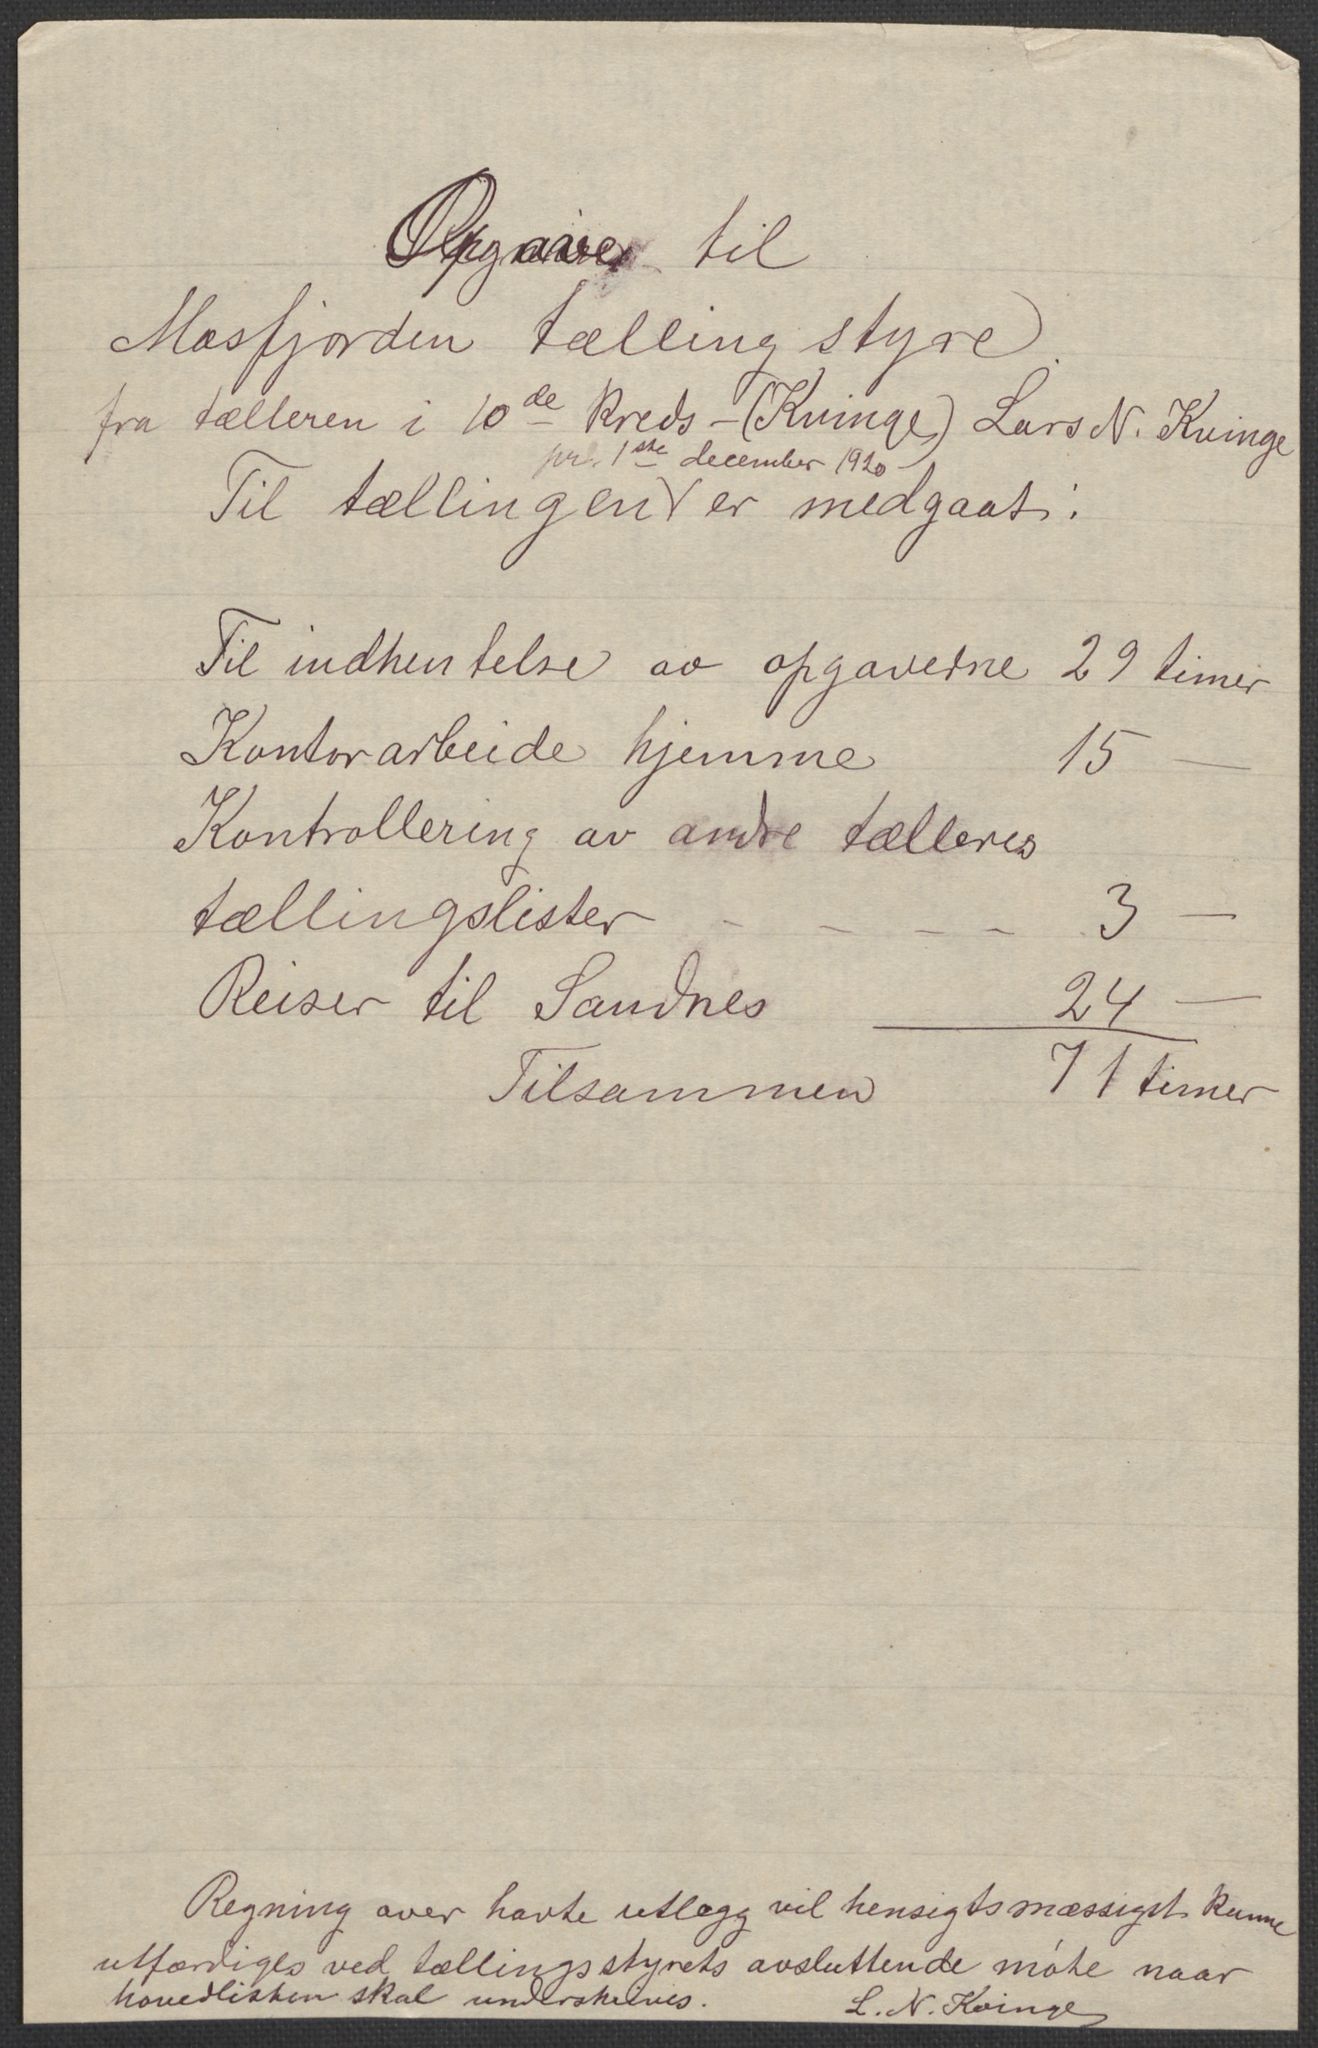 Opgave til
Masfjorden tælling styre
fra tælleren i 10de kreds - (Kvinge) Lars N. Kvinge
pr. 1ste december 1920
Til tællingen V er medgaat:
Til indhentelse av opgaverne 29 timer
Kontorarbeide hjemme 15 —
Kontrollering av andre tælleres
tællingslister - - - - 3 —
Reiser til Sandnes 24 —
Tilsammen 71 timer
Regning over havte utlægg vil hensigtsmæssigst kunne
utfærdiges ved tællingsstyrets avsluttende møte naar
hovedlisten skal underskrives. L. N. Kvinge